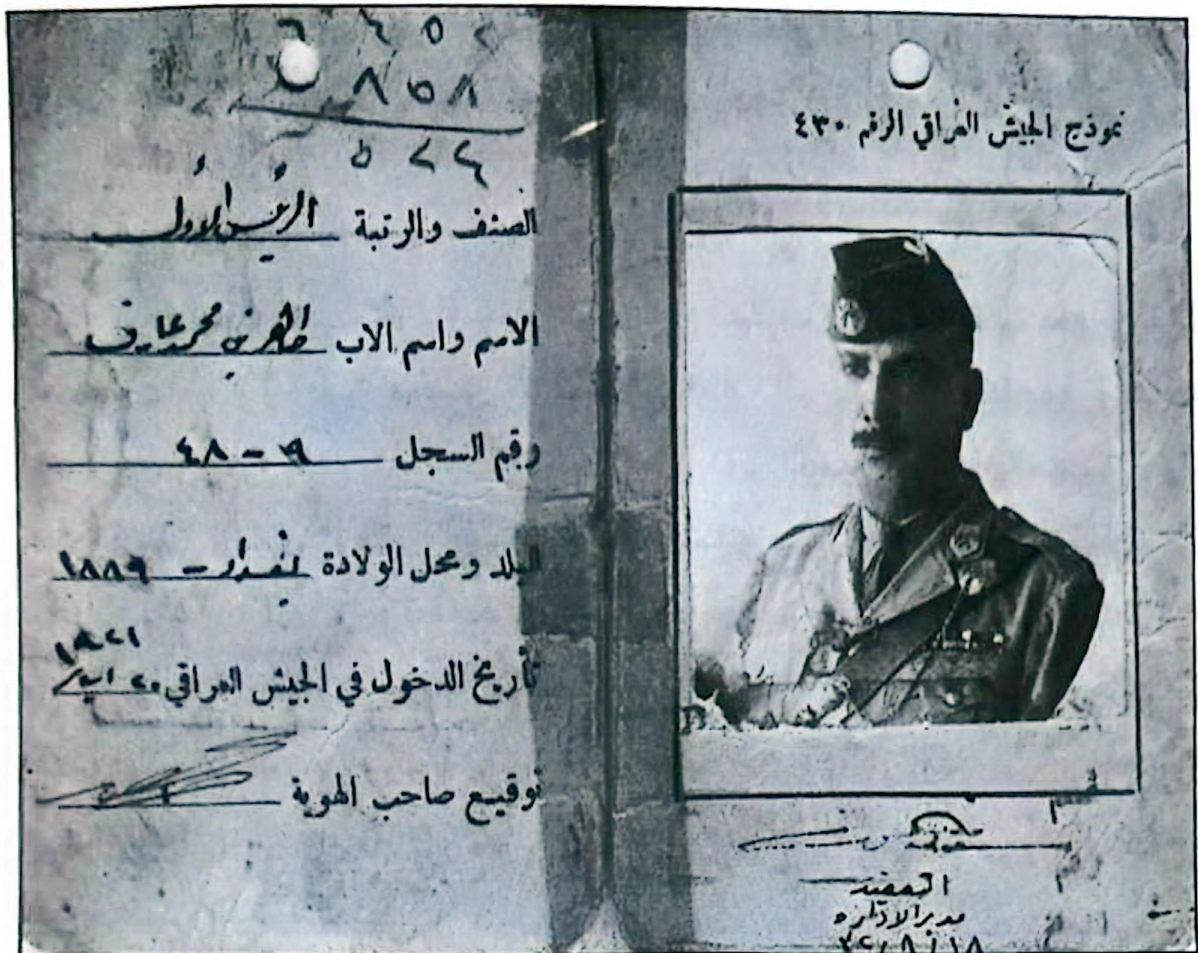 نموذج الجيش العراقي الرقم ٤٣٠
العقيد
مدير الادارة
٨٥٨
٥٢٢٤
الصنف والرتبة الرئيس الاول
الاسم واسم الاب طاهر بن محمد عارف
رقم السجل ٩ - ٤٨
البلد ومحل الولادة بغداد - ١٨٨٩
تأريخ الدخول في الجيش العراقي ٢٠ / ١٩٢١
توقيع صاحب الهوية